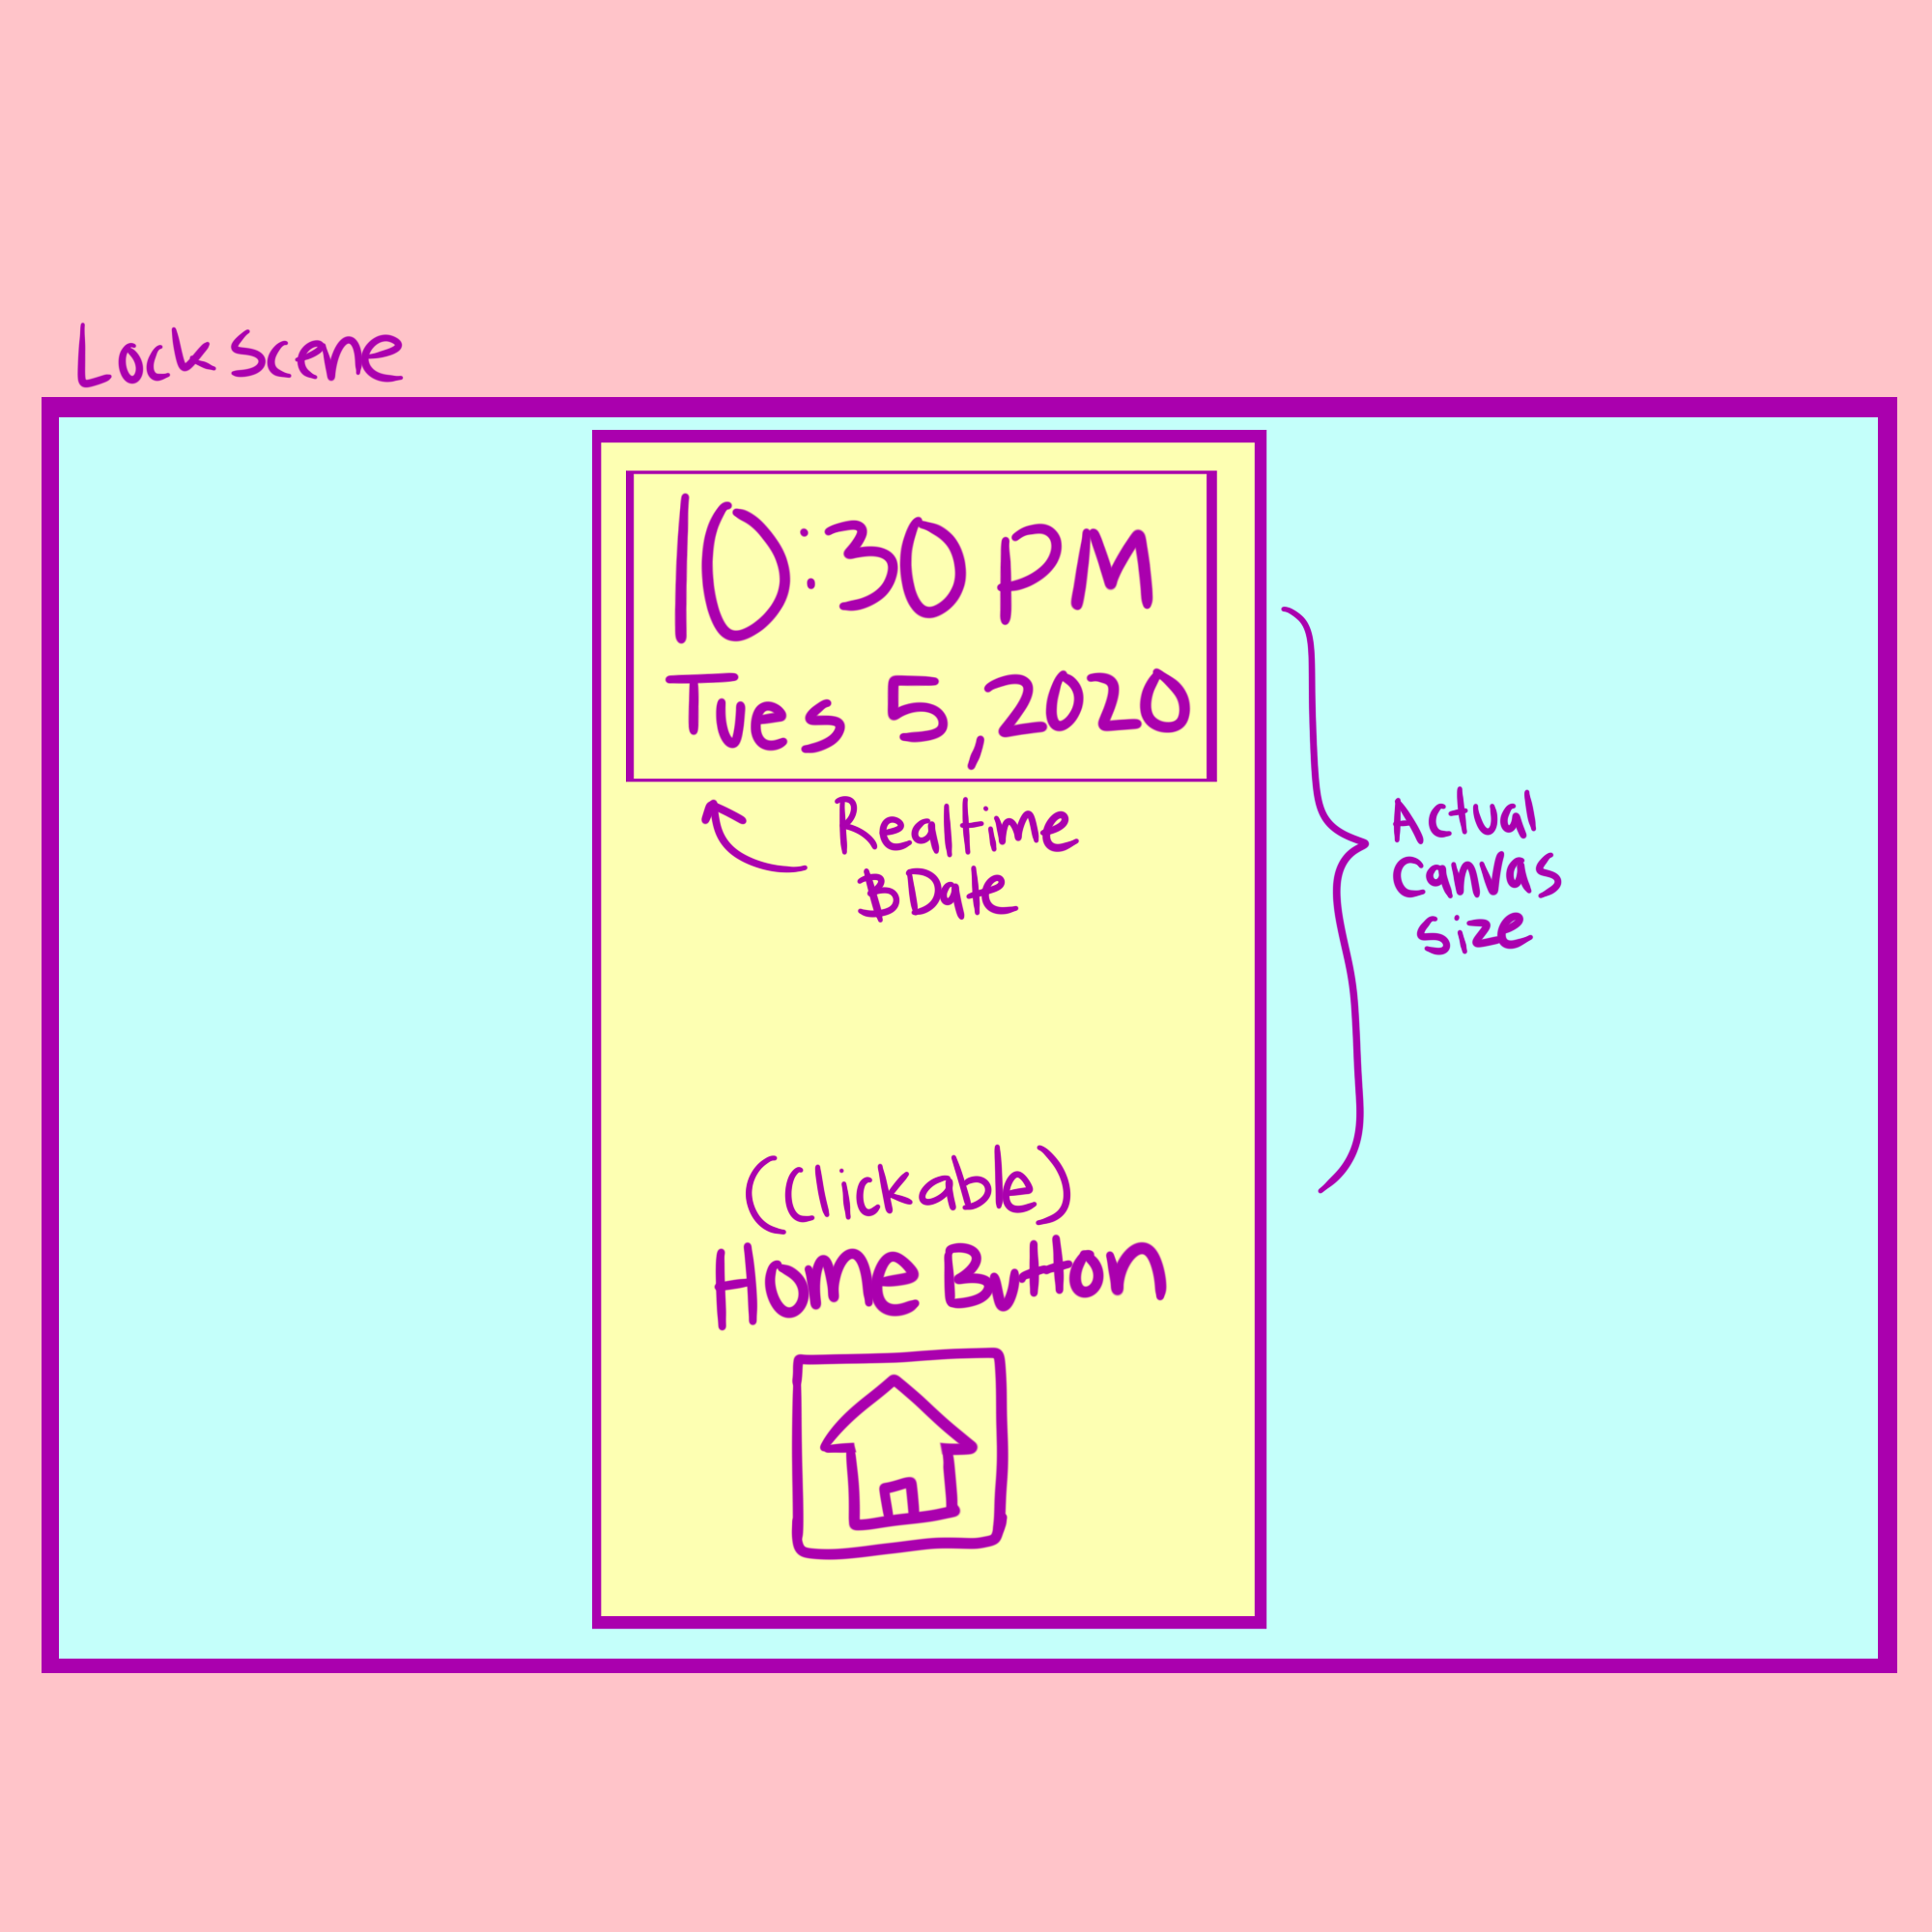 Lock Scene
10:30 PM
Tues 5, 2020
Realtime
& Date
Actual
Canvas
Size
(Clickable)
Home Button